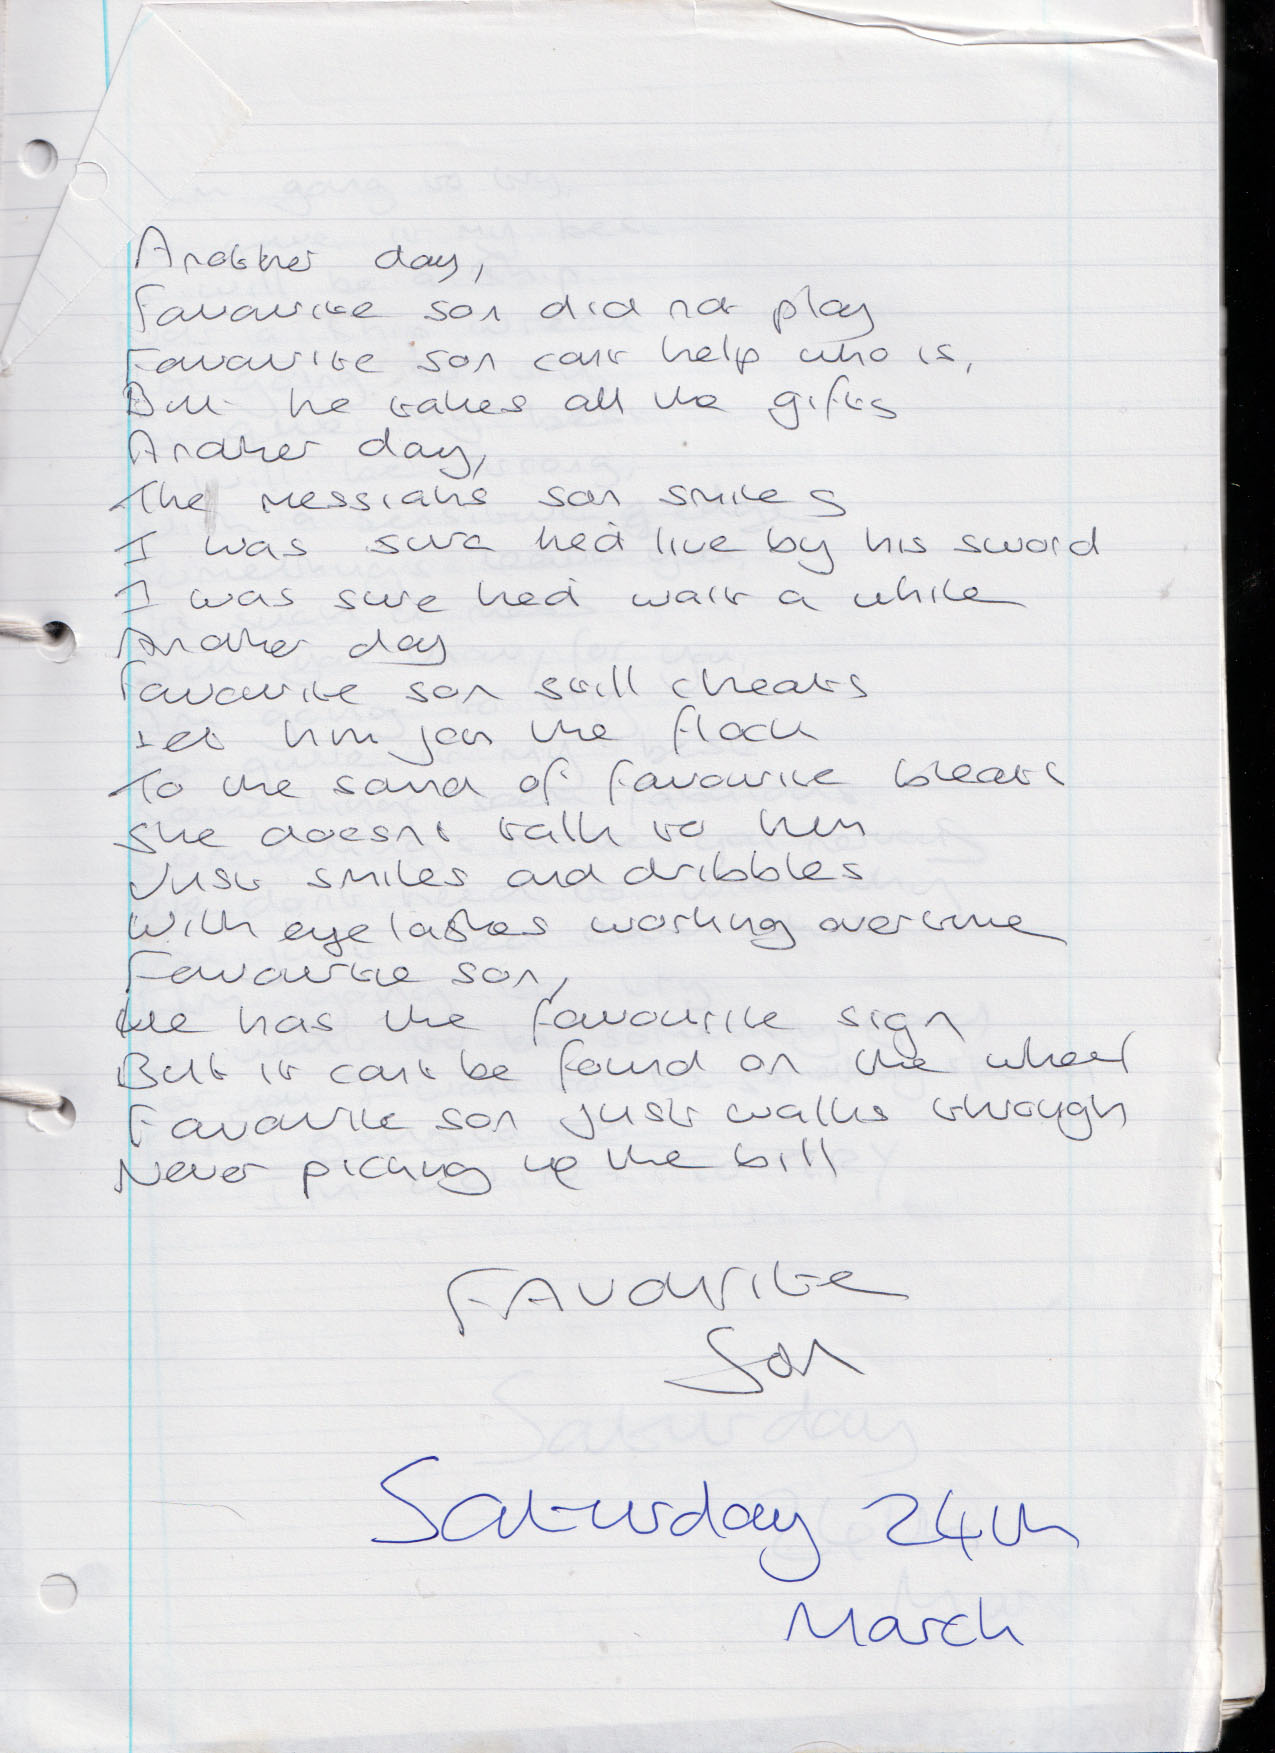 Another day,
Favourite son did not play
Favourite son cant help who is,
But he takes all the gifts
Another day,
The Messiahs son smiles
I was sure he'd live by his sword
I was sure he'd wait a while
Another day
Favourite son still cheats
Let him join the flock
To the sound of favourite bleats
She doesnt talk to him
Just smiles and dribbles
With eyelashes working overtime
Favourite son,
He has the favourite sign
But it cant be found on the wheel
Favourite son just walks through
Never picking up the bill
FAVOURITE
Son
Saturday 24th
March